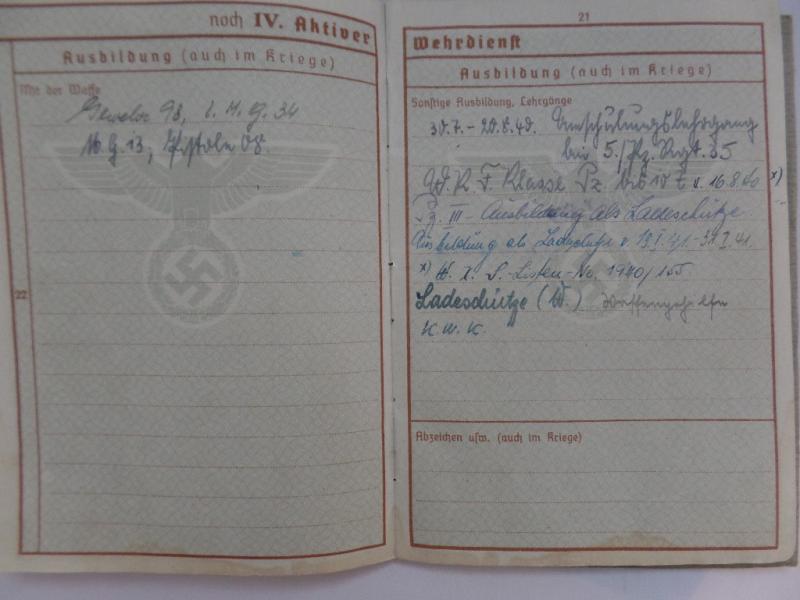 noch IV. Aktiver
Ausbildung (auch im Kriege)
Mit der Waffe
Gewehr 98, l. M. G. 34
M. G. 13, Pistole 08.
22
21
Wehrdienst
Ausbildung (auch im Kriege)
Sonstige Ausbildung, Lehrgänge
30.7. - 20.8.40. Umschulungslehrgang
bei 5./Pz. Rgt. 35
K. F. Klasse Pz bis 10 t v. 16.8.40 x)
Pz. III - Ausbildung als Ladeschütze
Ausbildung als Ladeschütze v. 31.I.41.
x) S. Listen-No. 1940/155
Ladeschütze (W.)
K.W.K.
Abzeichen usw. (auch im Kriege)